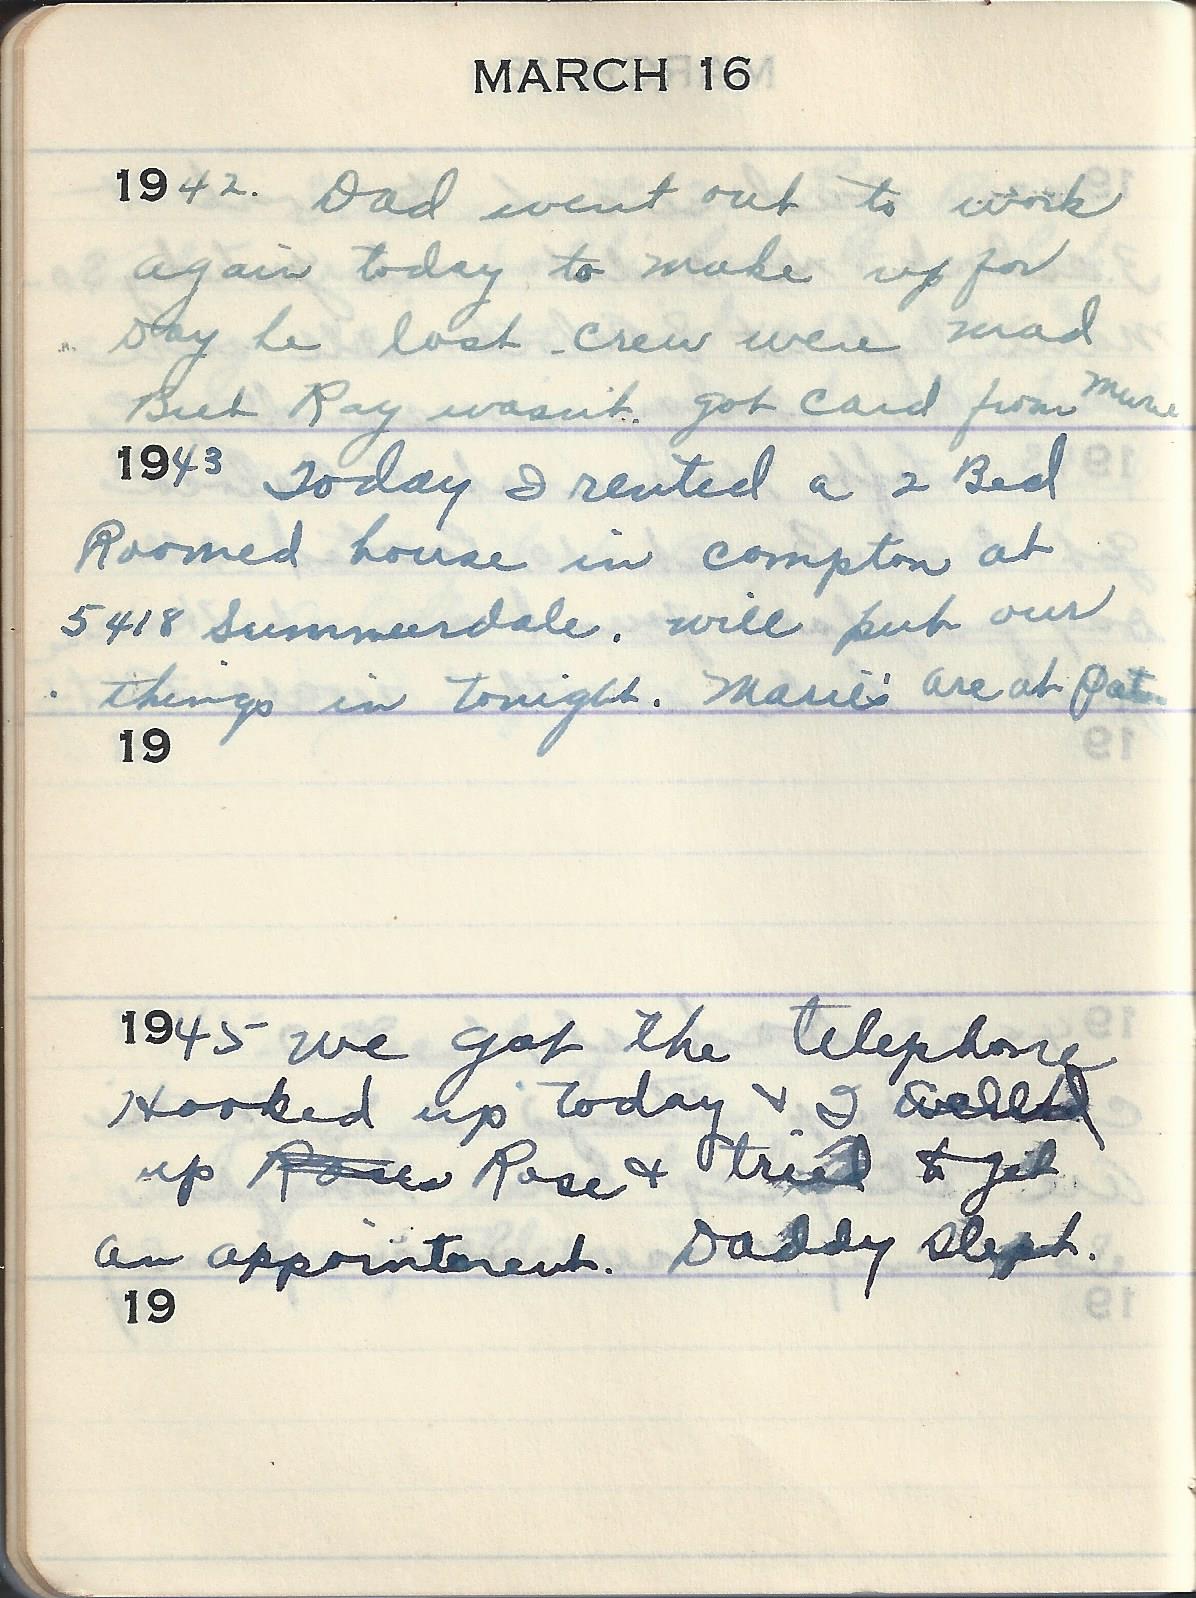 MARCH 16
1942. Dad went out to work
again today to make up for
Day he lost - crew were mad
But Ray wasn't. got card from Marie
1943 Today I rented a 2 Bed
Roomed house in compton at
5418 Summerdale. will put our
things in tonight. Marie's are at Pat
19
1945 we got the telephone
Hooked up today & I called
up Rose & tried to get
an appointment. Daddy slept.
19